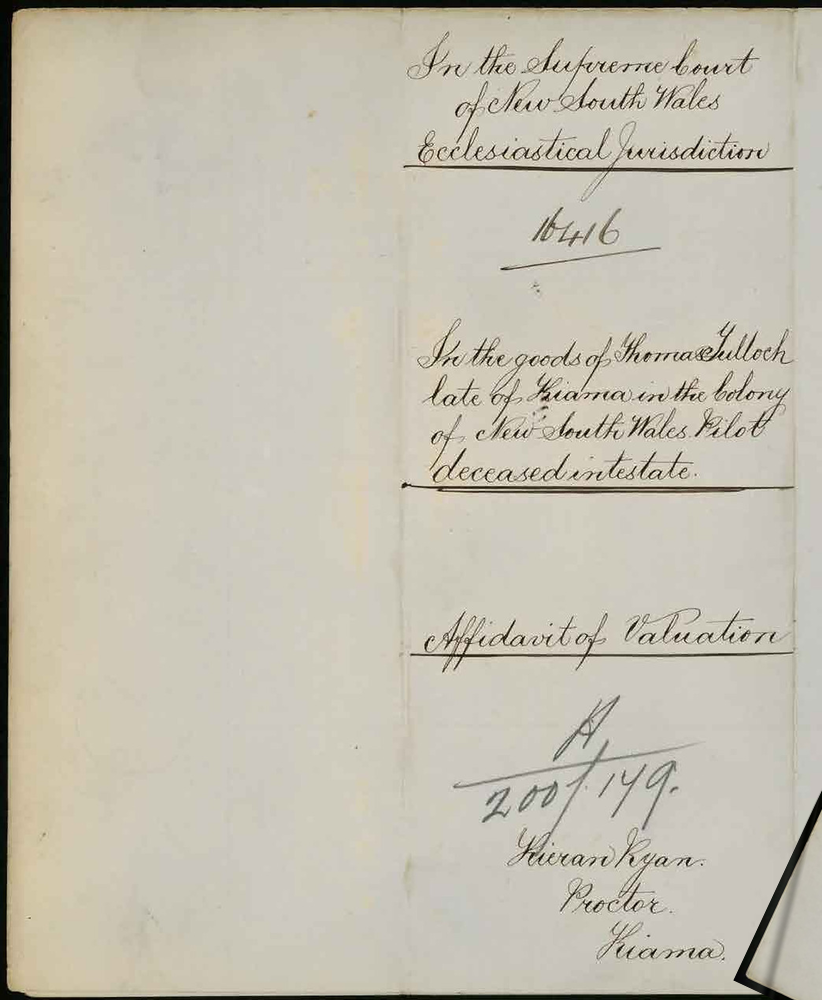 In the Supreme Court
of New South Wales
Ecclesiastical Jurisdiction
16416
In the goods of Thomas Tulloch
late of Kiama in the Colony
of New South Wales Pilot
deceased intestate.
Affidavit of Valuation
A
200/149.
Kieran Ryan.
Proctor.
Kiama.